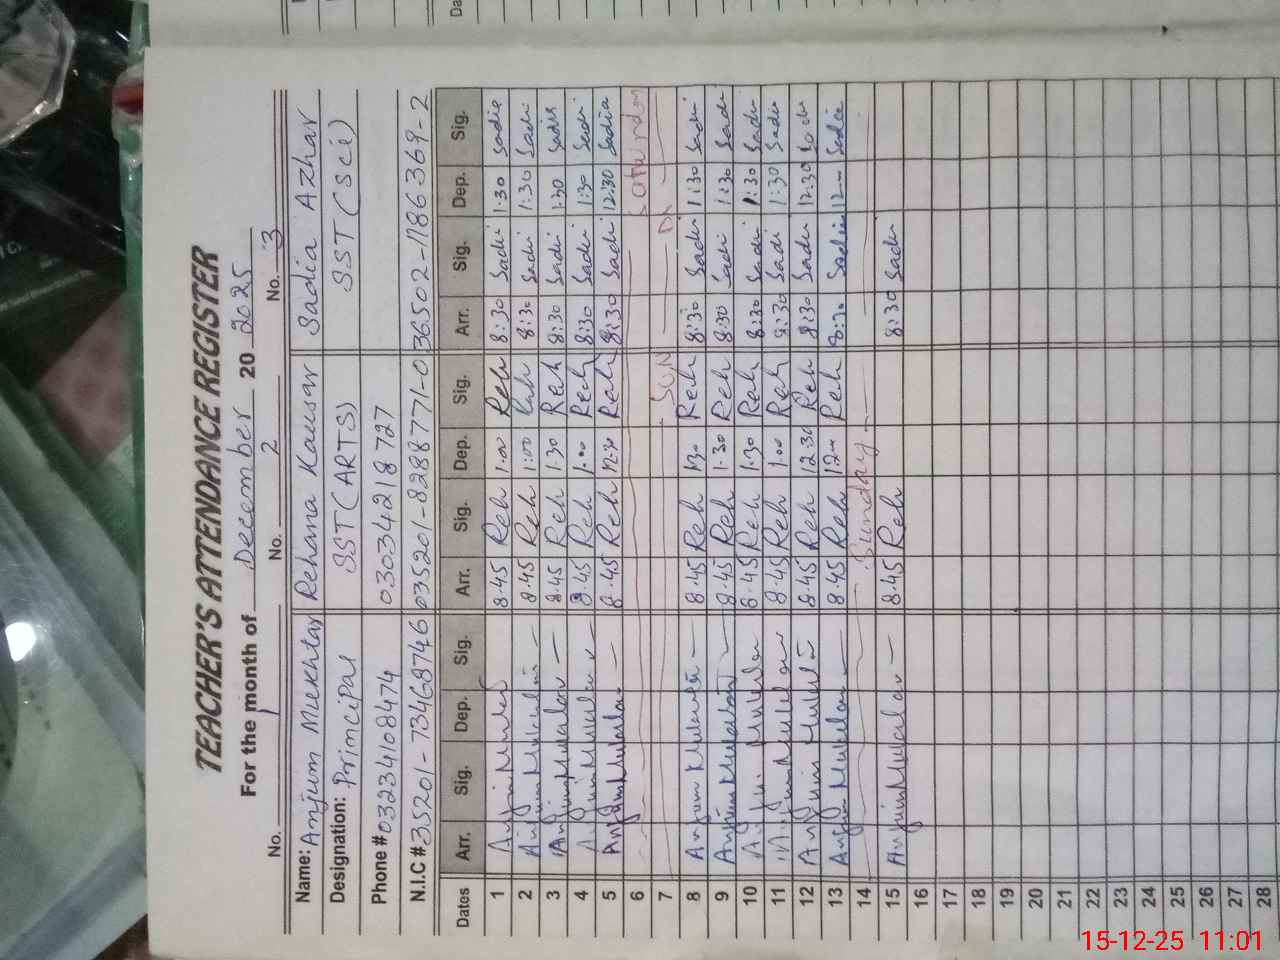 TEACHER'S ATTENDANCE REGISTER
For the month of December 20 2025
No. 1 No. 2 No. 3
Name: Anjum Mukhtar Rehana Kausar Sadia Azhar
Designation: Principal SST (ARTS) SST (Sci)
Phone # 03234108474 03034218727
N.I.C # 35201-73468746 035201-8288771-0 36502-1186369-2
Dates Arr. Sig. Dep. Sig. Arr. Sig. Dep. Sig. Arr. Sig. Dep. Sig.
1 8.45 Reh 1.00 Reh 8:30 Sadi 1.30 Sadia
2 8.45 Reh 1:00 Reh 8:30 Sadi 1:30 Sadi
3 8.45 Reh 1.30 Reh 8:30 Sadi 1.30 Sadia
4 8.45 Reh 1.00 Reh 8:30 Sadi 1:30 Sadi
5 8.45 Reh 12.30 Reh 8:30 Sadi 12:30 Sadia
6 Saturday
7 SUN D
8 8.45 Reh 1.30 Reh 8:30 Sadi 1:30 Sadi
9 8.45 Reh 1.30 Reh 8:30 Sadi 1:30 Sadi
10 8.45 Reh 1.30 Reh 8:30 Sadi 1:30 Sadi
11 8.45 Reh 1.00 Reh 8:30 Sadi 1:30 Sadi
12 8.45 Reh 12.30 Reh 8:30 Sadi 12:30 Sadi
13 8.45 Reh 12 Reh 8:30 Sadia 12 Sadia
14 Sunday
15 8.45 Reh 8:30 Sadi
16
17
18
19
20
21
22
23
24
25
26
27
28
15-12-25 11:01